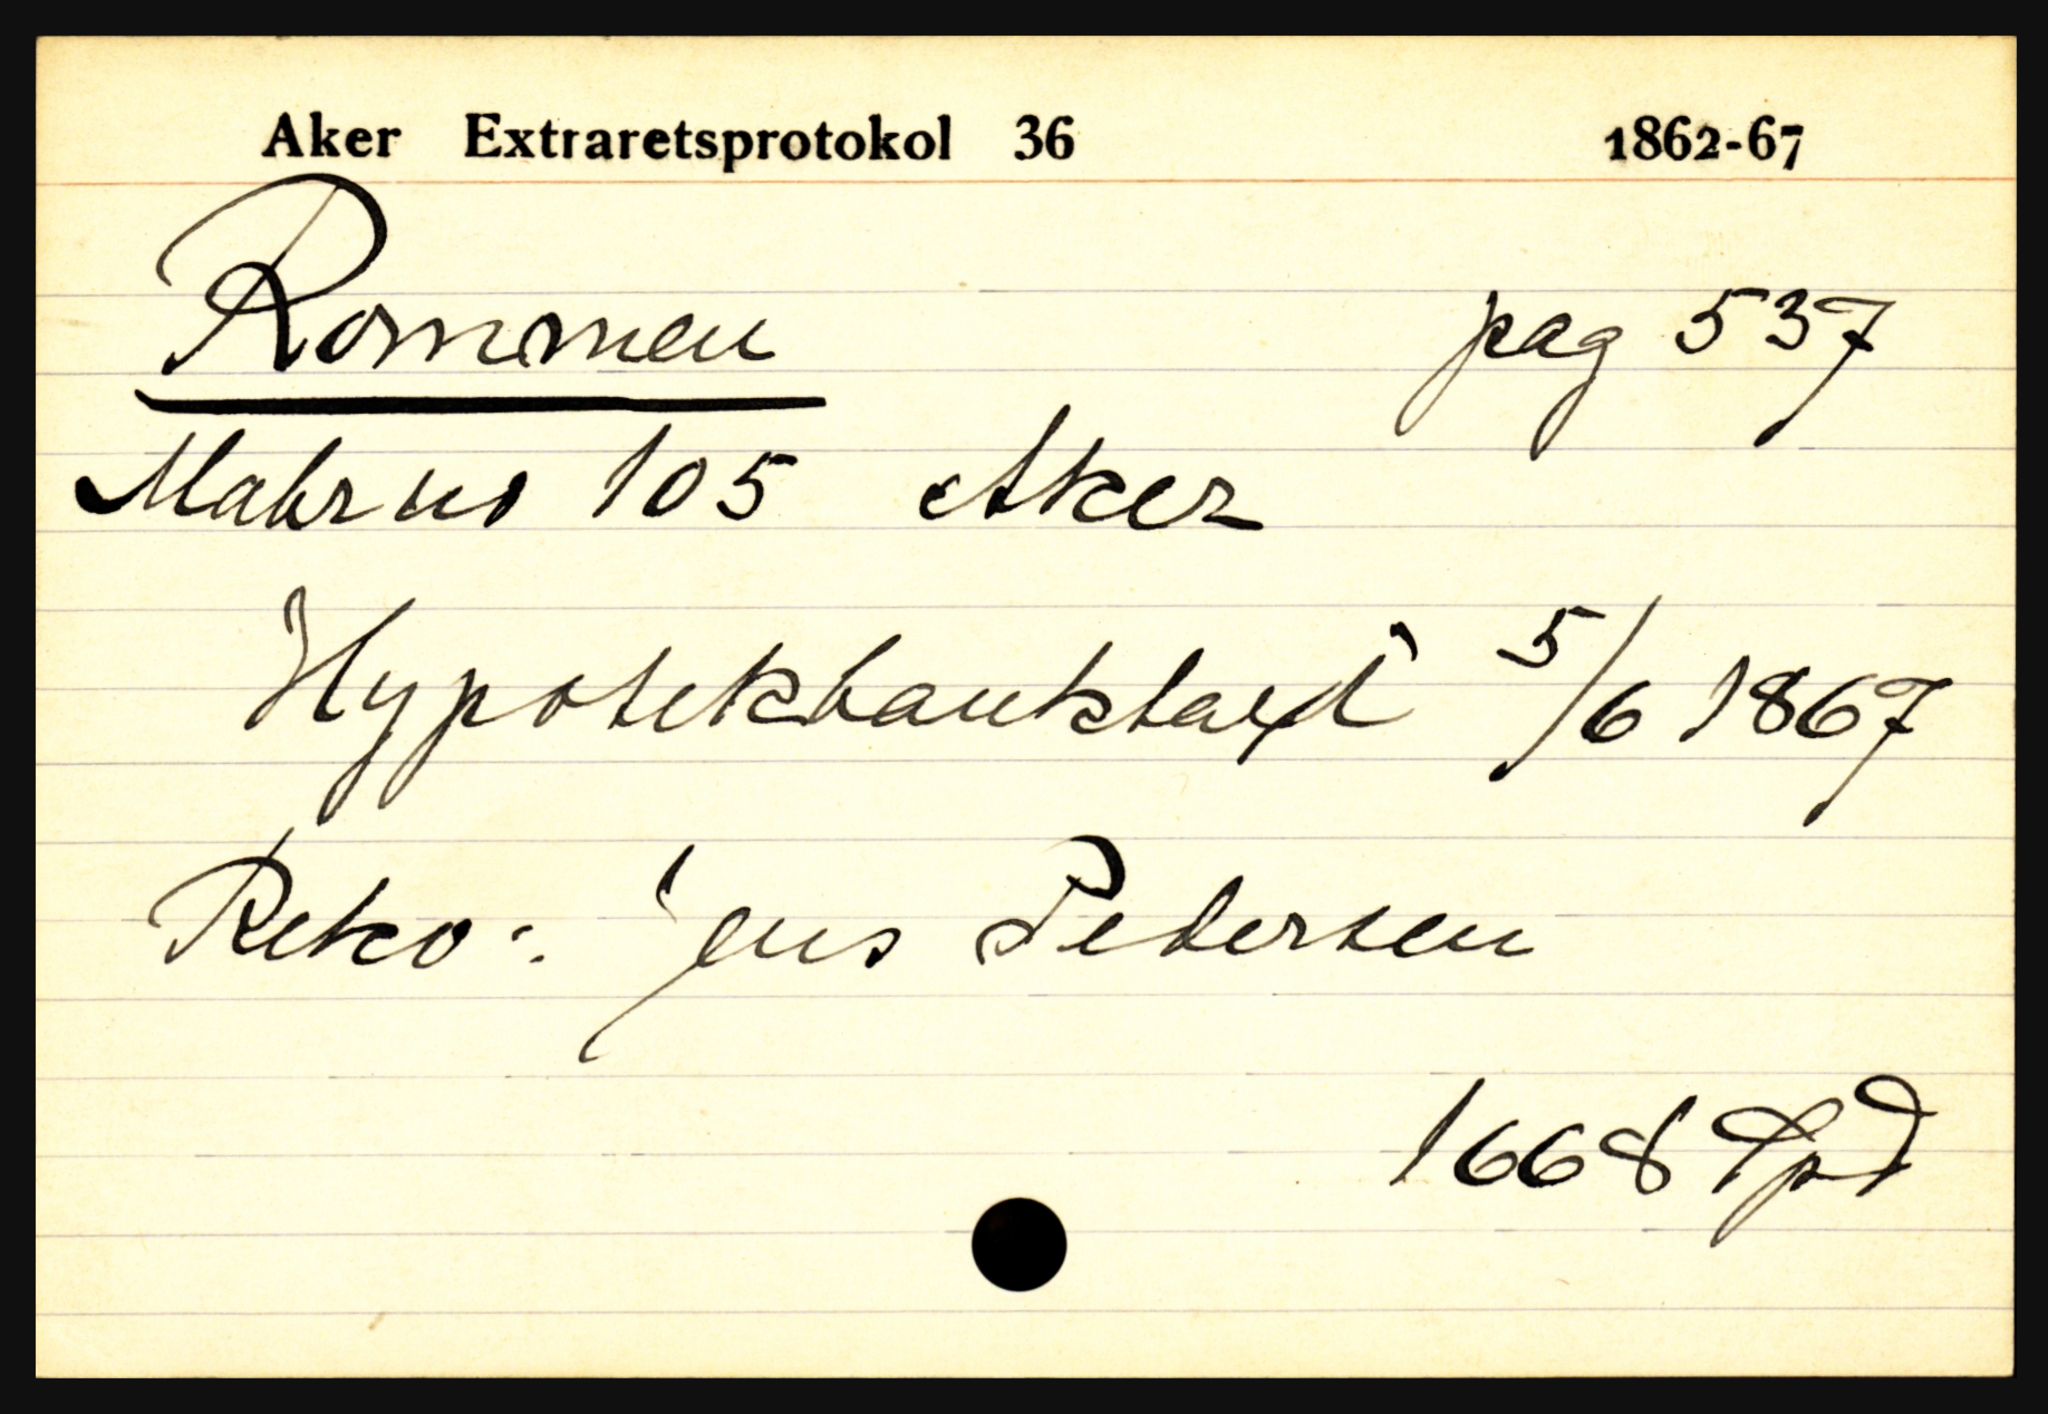 Aker Extraretsprotokol 36 1862-67
Rommen pag 537
Matr no 105 Aker
Hypotekbanktaxt 5/6 1867
Reko: Jens Pedersen
1668 Spd